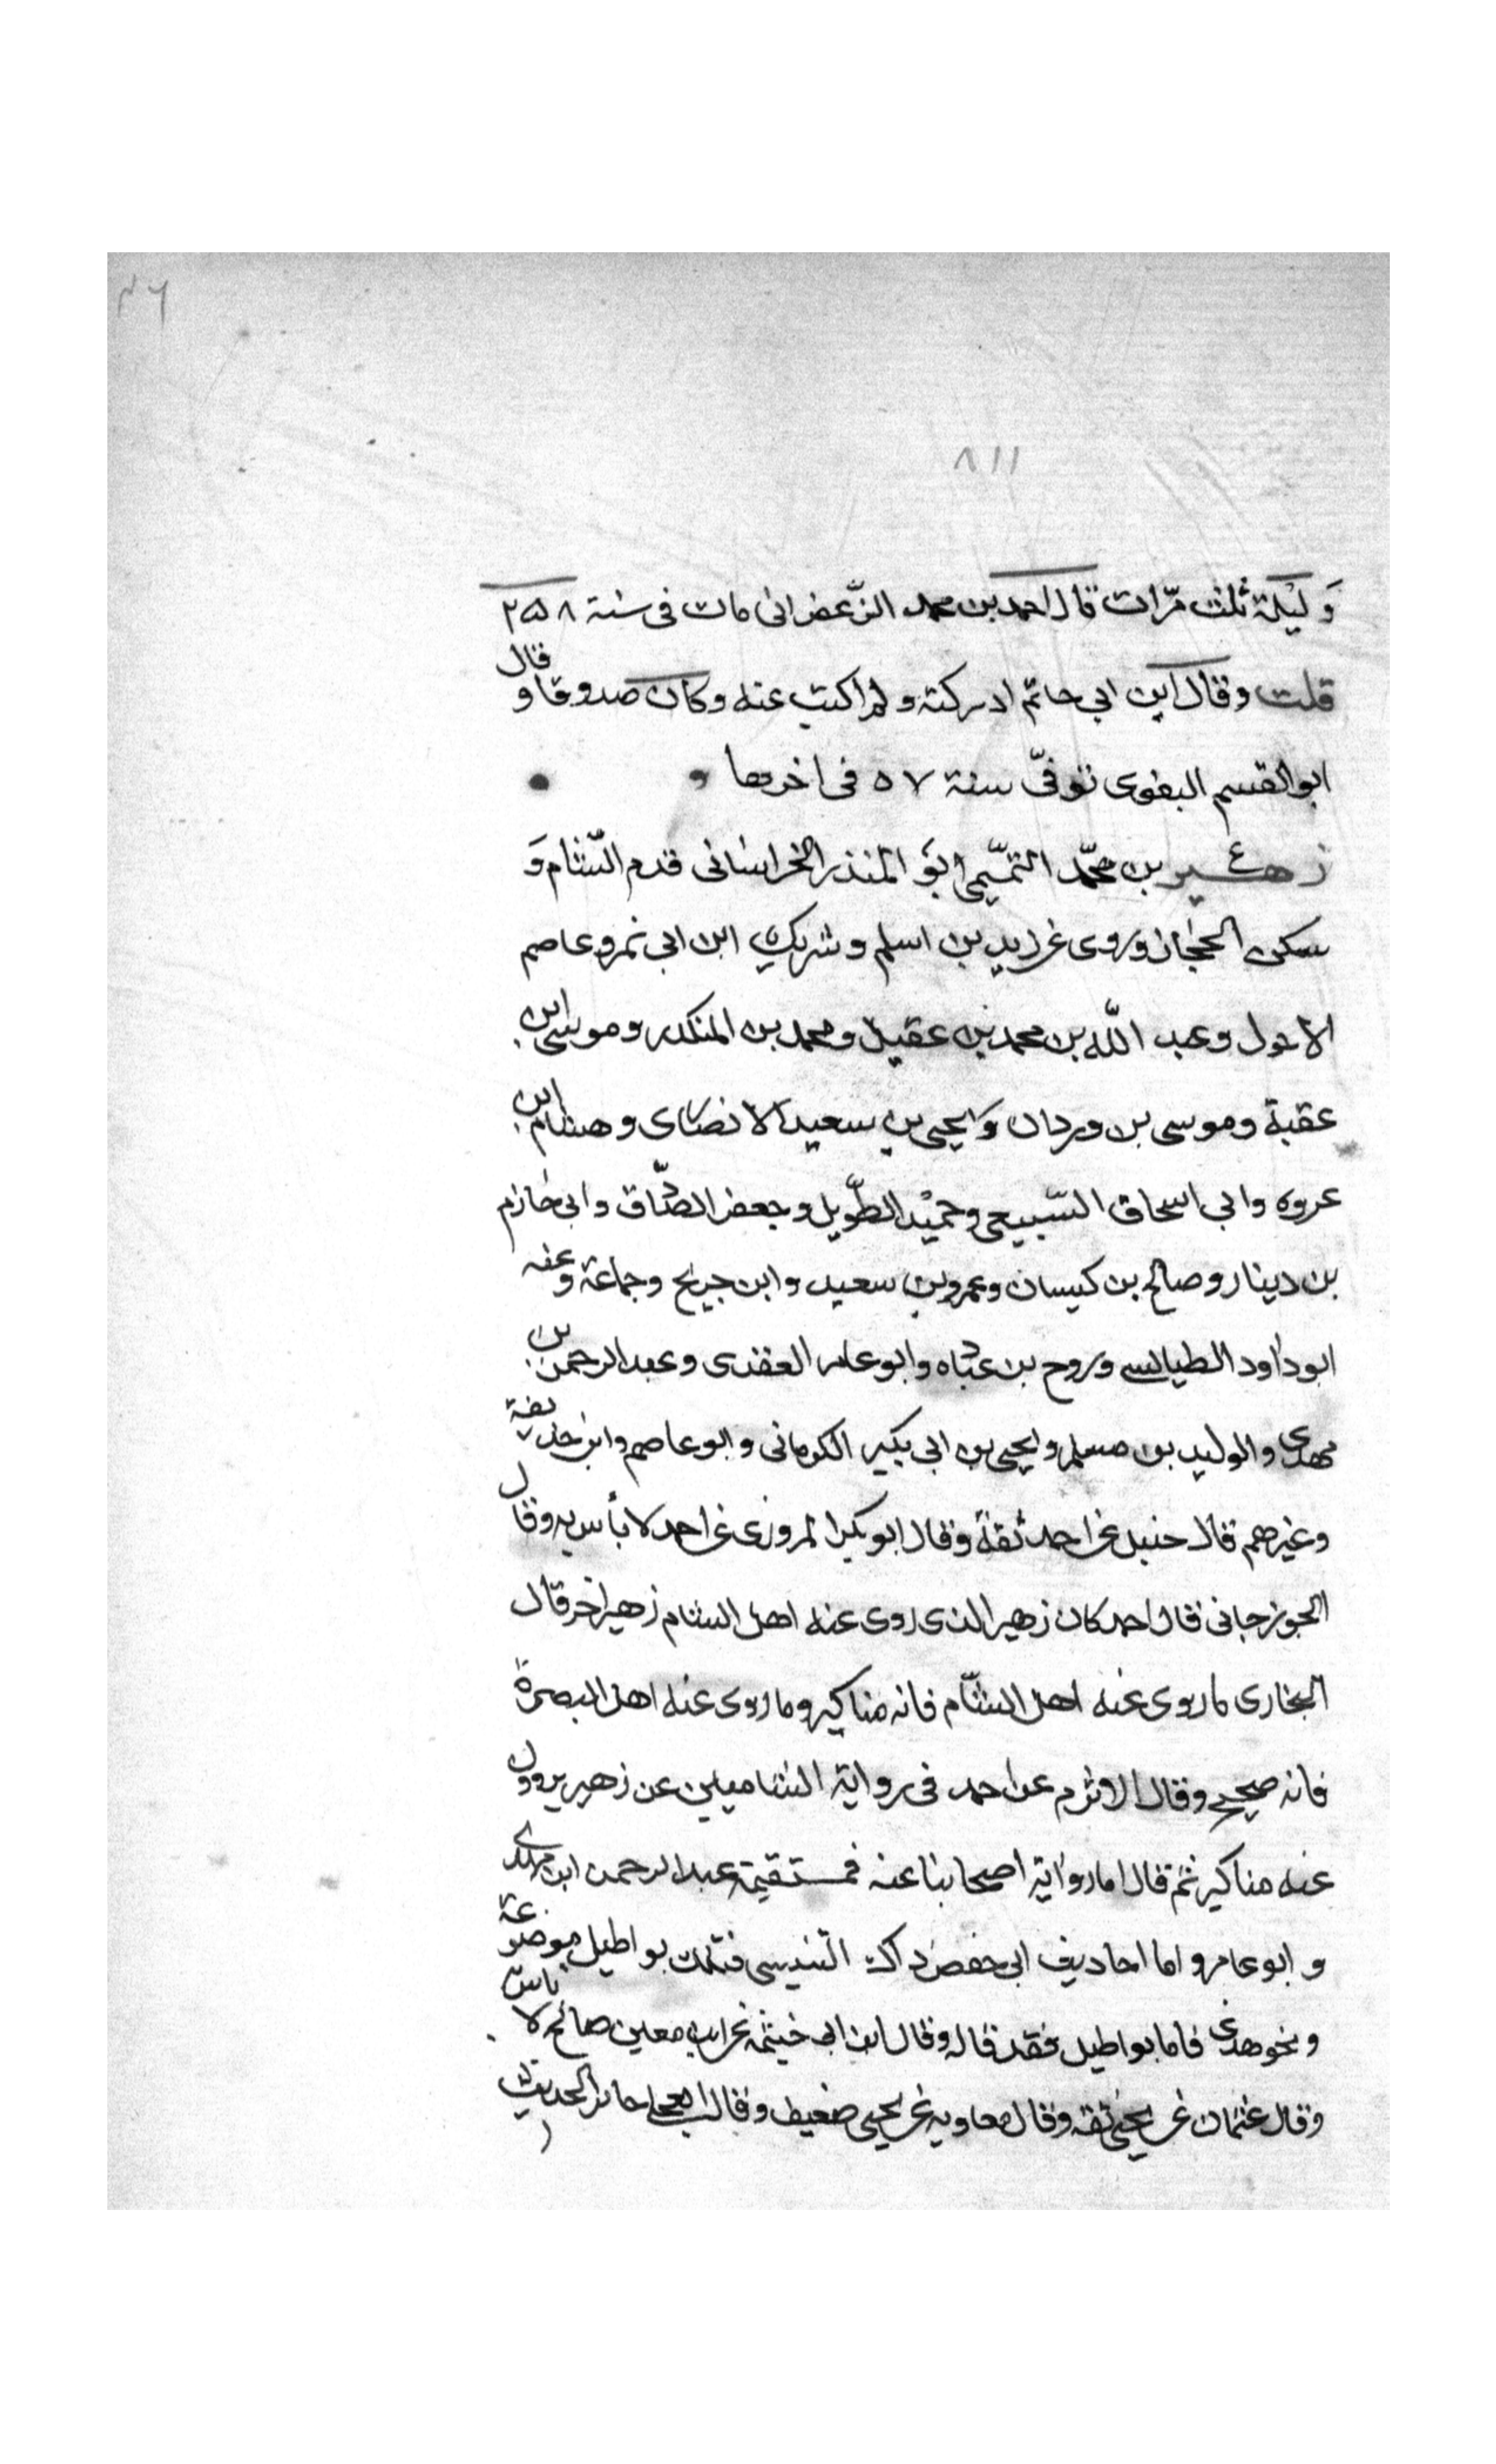 ٤٦
٨١١
وَ لَيْلَة ثلث مرّات قال احمد بن محمد الزّعفرانى مات فى سنة ٢٥٨
قلت وقال ابن ابي حاتم ادركته و لم اكتب عنه وكان صدوقا و قال
ابو القسم البغوى توفىّ سنة ٥٧ فى اخرها
زهير بن محمّد التّميمى ابوَ المنذر الخراسانى قدم الشّام وَ
سكن الحجاز وروى عن زيد بن اسلم وشريك ابن ابى نمر وعاصم
الاحول وعبد اللّه بن محمد بن عقيل ومحمد بن المنكدر وموسى ابن
عقبة وموسى بن وردان وَيحيى بن سعيد الانصارى وهشام ابن
عروه وابى اسحاق السّبيعى وحميْد الطّويل وجعفر الصّادق وابى حازم
بن دينار وصالح بن كيسان وعمرو بن سعيد وابن جريج وجماعة وعنه
ابو داود الطيالسى وروح بن عباده وابو عامر العقدى وعبد الرحمن بن
مهدى والوليد بن مسلم ويحيى بن ابى بكير الكرمانى وابو عاصم وابو حذيفة
وغيرهم قال حنبل عن احمد ثقة وقال ابو بكر المروزى عن احمد لا بأس به وقال
الجوزجانى قال احمد كان زهير الذى روى عنه اهل الشام زهير اخر قال
البخارى ما روى عنه اهل الشّام فانه مناكير وما روى عنه اهل البصرة
فانه صحيح وقال الاثرم عن احمد فى رواية الشاميين عن زهير يروون
عنه مناكير ثم قال اما رواية اصحابنا عنه فمستقيمة عبد الرحمن ابن مهدى
و ابو عامر و اما احاديث ابى حفص ذاك التنيسى فتلك بواطيل موضوعة
و نحو هذى فاما بواطيل فقد قاله وقال ابن ابى خيثمه عن ابن معين صالح لا باس
وقال عثمان عن يحيى ثقه وقال معاويه عن يحيى ضعيف وقال العجلى جائز الحديث